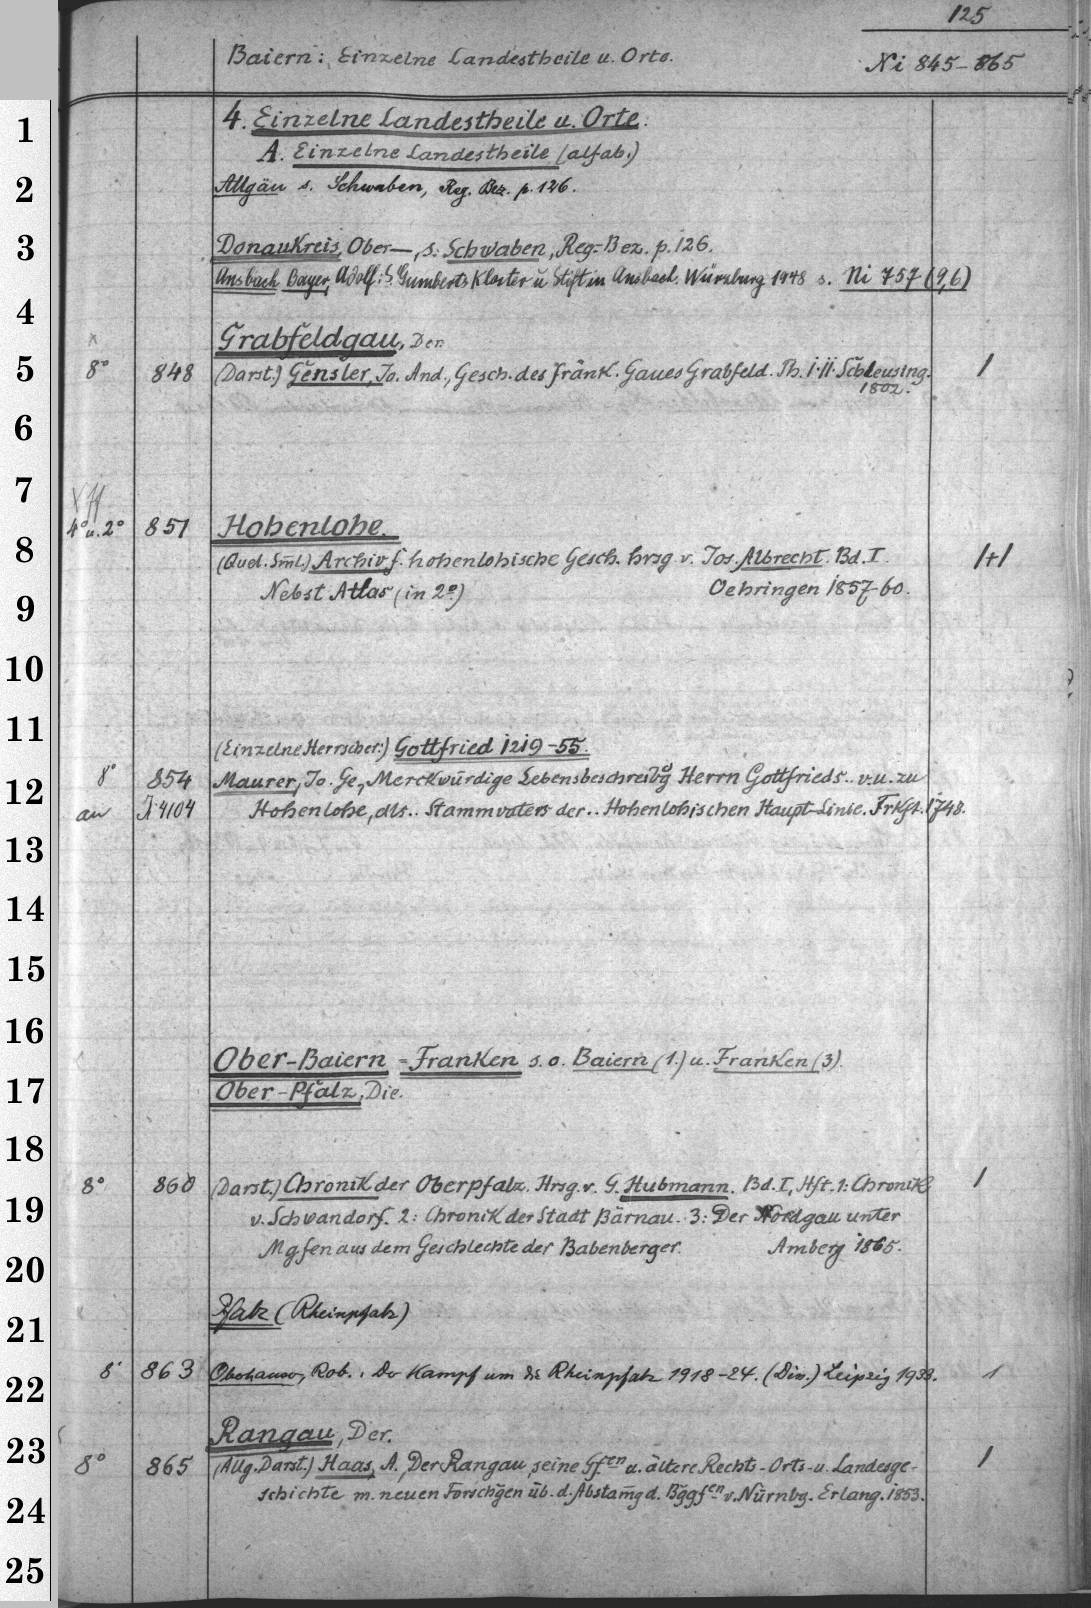 125
Baiern: Einzelne Landestheile u. Orte. Ni 845-865
1
4. Einzelne Landestheile u. Orte.
A. Einzelne Landestheile (alfab.)
2
Allgäu s. Schwaben, Reg. Bez. p. 126.
3
Donaukreis, Ober—, s. Schwaben, Reg=Bez. p. 126.
Ansbach Bayer, Adolf: S. Gumberts Kloster u Stift in Ansbach. Würzburg 1948 s. Ni 757 (9,6)
4
Grabfeldgau, Der.
5
8° 848 (Darst.) Gensler, Jo. And., Gesch. des fränk. Gaues Grabfeld. Th. I.II. Schleusing. 1
1802.
6
7
4° u. 2° 851 Hohenlohe.
8
(Quel. Sml.) Archiv f. hohenlohische Gesch. hrsg v. Jos. Albrecht. Bd. I. 1+1
Nebst Atlas (in 2°) Oehringen 1857-60.
9
10
11
(Einzelne Herrscher:) Gottfried 1219-55.
8° 854 Maurer, Jo. Ge., Merckwürdige Lebensbeschreibg Herrn Gottfrieds.. v. u. zu
12
an 4104 Hohenlohe, als.. Stammvaters der.. Hohenlohischen Haupt-Linie. Frkft. 1748.
13
14
15
16
Ober-Baiern =Franken s. o. Baiern (1.) u. Franken (3).
17
Ober-Pfalz, Die.
18
8° 860 (Darst.) Chronik der Oberpfalz. Hrsg. v. G. Hubmann. Bd. I, Hft. 1: Chronik 1
19
v. Schwandorf. 2: Chronik der Stadt Bärnau. 3: Der Nordgau unter
Mgfen aus dem Geschlechte der Babenberger. Amberg 1865.
20
Pfalz (Rheinpfalz)
21
8° 863 Oberhauser, Rob.: Der Kampf um die Rheinpfalz 1918-24. (Diss.) Leipzig 1933. 1
22
Rangau, Der.
23
8° 865 (Allg. Darst.) Haas, A., Der Rangau, seine Gf.en u. ältere Rechts- Orts- u. Landesge- 1
schichte m. neuen Forschgen üb. d. Abstamg d. Bggfen v. Nürnbg. Erlang. 1853.
24
25